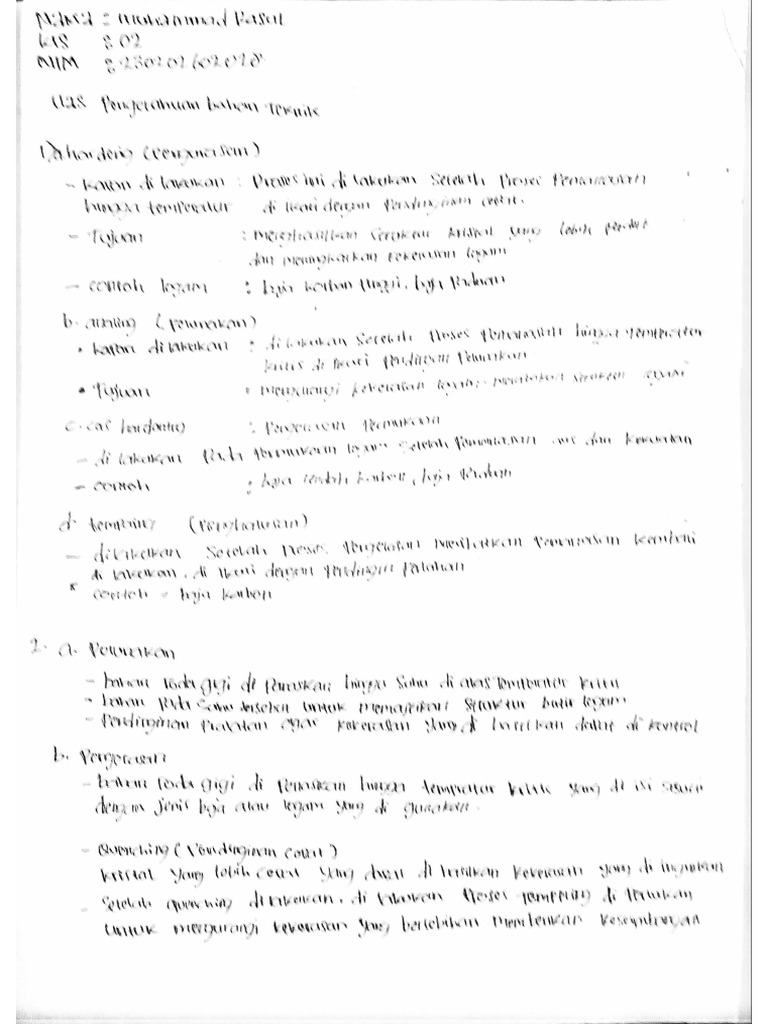 Nama : Muhammad Fasal
kls : 02
NIM : 
UAS Pengetahuan bahan Teknik
1. a hardening (Pengerasan)
- kapan di lakukan : Proses ini di lakukan Setelah Proses Pemanasan
hingga temperatur di ikuti dengan Pendinginan cepat.
- Tujuan : menghasilkan Struktur kristal yang lebih
dan meningkatkan kekerasan logam
- contoh logam : baja karbon tinggi, baja Paduan
b. (Pelunakan)
• kapan di lakukan : di lakukan Setelah Proses Pemanasan hingga temperatur
kritis di ikuti
• Tujuan : mengurangi kekerasan logam, struktur
c. : Pengerasan Permukaan
- di lakukan Pada Permukaan logam Setelah Pemanasan dan
- contoh : baja rendah karbon, baja Paduan
d. (Penghalusan)
- di lakukan Setelah Proses Pengerasan Pemanasan kembali
di lakukan, di ikuti dengan
* contoh = baja karbon
2. a. Pelunakan
- bahan roda gigi di Panaskan hingga Suhu di atas temperatur kritis
- bahan Pada Suhu tersebut untuk Struktur butir logam
- Pendinginan agar kekerasan yang di hasilkan dapat di kontrol
b. Pengerasan
- bahan roda gigi di Panaskan hingga temperatur kritis yang di sesuai
dengan jenis baja atau logam yang di gunakan.
- Quenching (Pendinginan cepat)
kristal yang lebih cepat yang dapat di hasilkan kekerasan yang di inginkan
- Setelah quenching di lakukan, di lakukan Proses tempering di Perlukan
untuk mengurangi kekerasan yang berlebihan